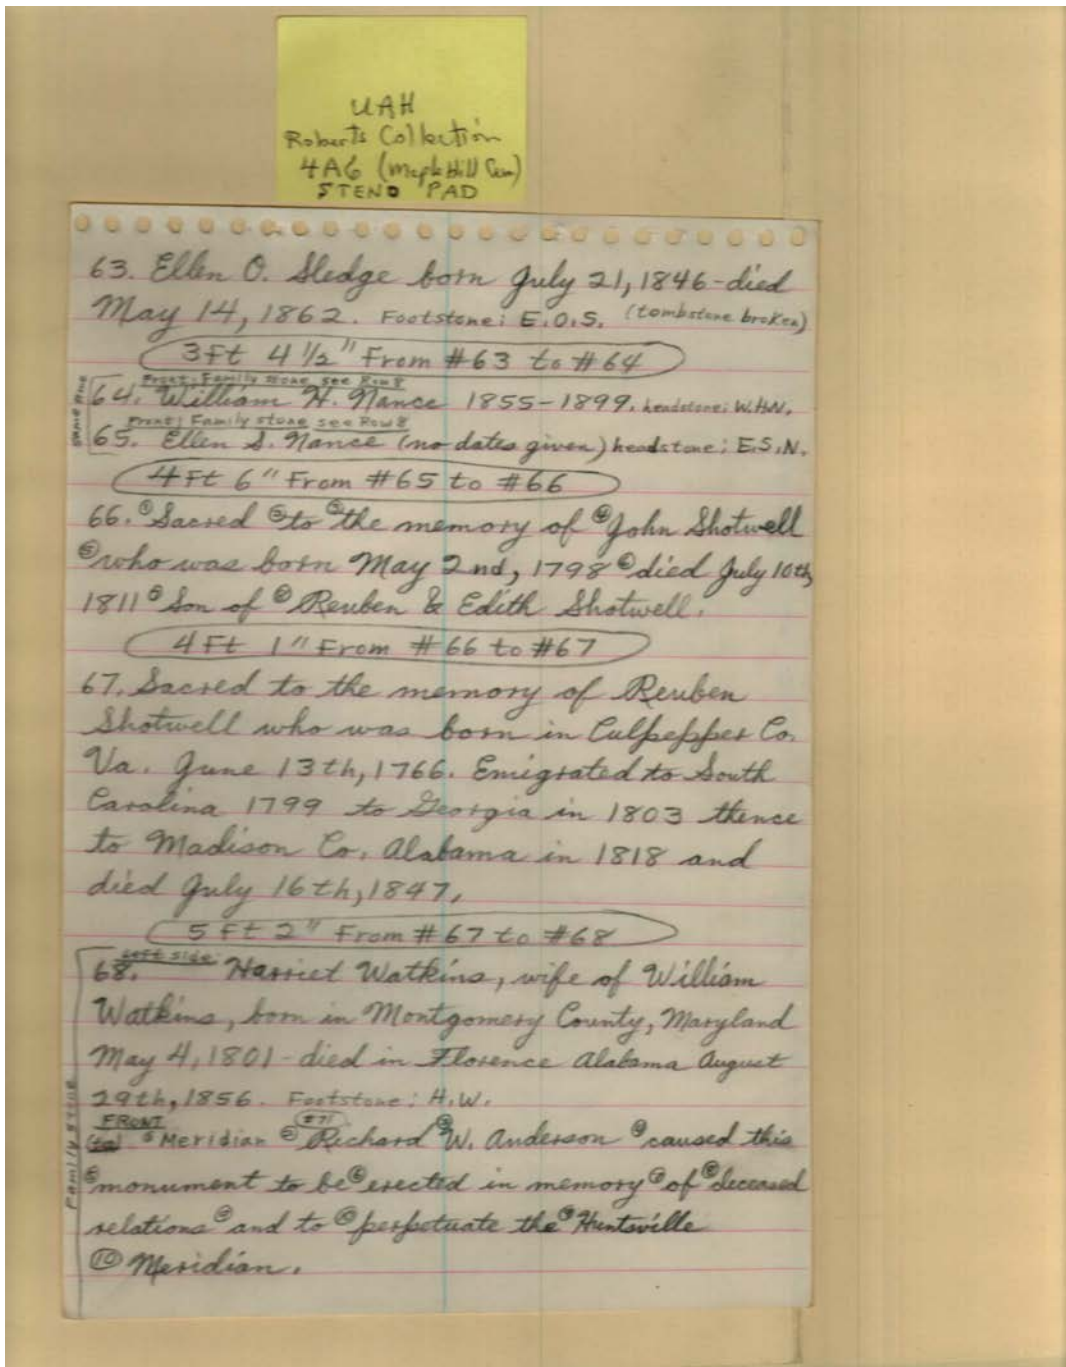 UAH
Roberts Collection
4A6 (Maple Hill Cem)
STENO PAD
63. Ellen O. Sledge born July 21, 1846-died
May 14, 1862. Footstone: E.O.S. (tombstone broken)
3ft 4 1/2" From #63 to #64
Front: Family stone see Row 8
64. William H. Nance 1855-1899. headstone: W.H.N.
Front: Family stone see Row 8
65. Ellen S. Nance (no dates given) headstone: E.S.N.
4 Ft 6" From #65 to #66
66. ①Sacred ②to ③the memory of ④John Shotwell
⑤who was born May 2nd, 1798 ⑥died July 10th,
1811 Son of Reuben & Edith Shotwell.
4 Ft 1" From #66 to #67
67. Sacred to the memory of Reuben
Shotwell who was born in Culpepper Co.
Va. June 13th, 1766. Emigrated to South
Carolina 1799 to Georgia in 1803 thence
to Madison Co. Alabama in 1818 and
died July 16th, 1847.
5 Ft 2" From #67 to #68
Left side:
68. Harriet Watkins, wife of William
Watkins, born in Montgomery County, Maryland
May 4, 1801-died in Florence Alabama August
29th, 1856. Footstone: H.W.
FRONT #71
Meridian Richard W. Anderson caused this
monument to be erected in memory of deceased
relations and to perpetuate the Huntsville
⑩ Meridian.
Family stone